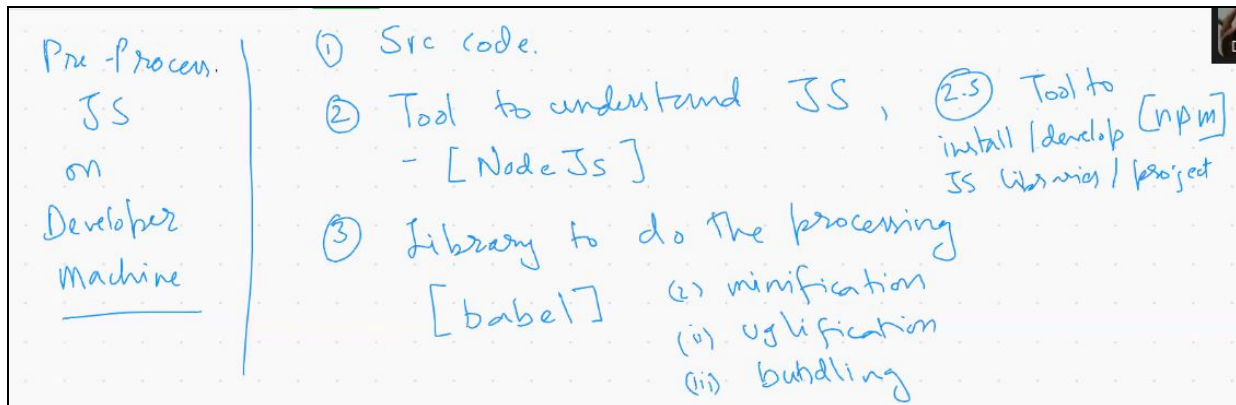 Pre-Process.
JS
on
Developer
Machine
① Src code.
② Tool to understand JS,
- [Node Js]
2.5 Tool to
install / develop [npm]
JS libraries / project
③ Library to do the processing
[babel]
(i) minification
(ii) uglification
(iii) bundling